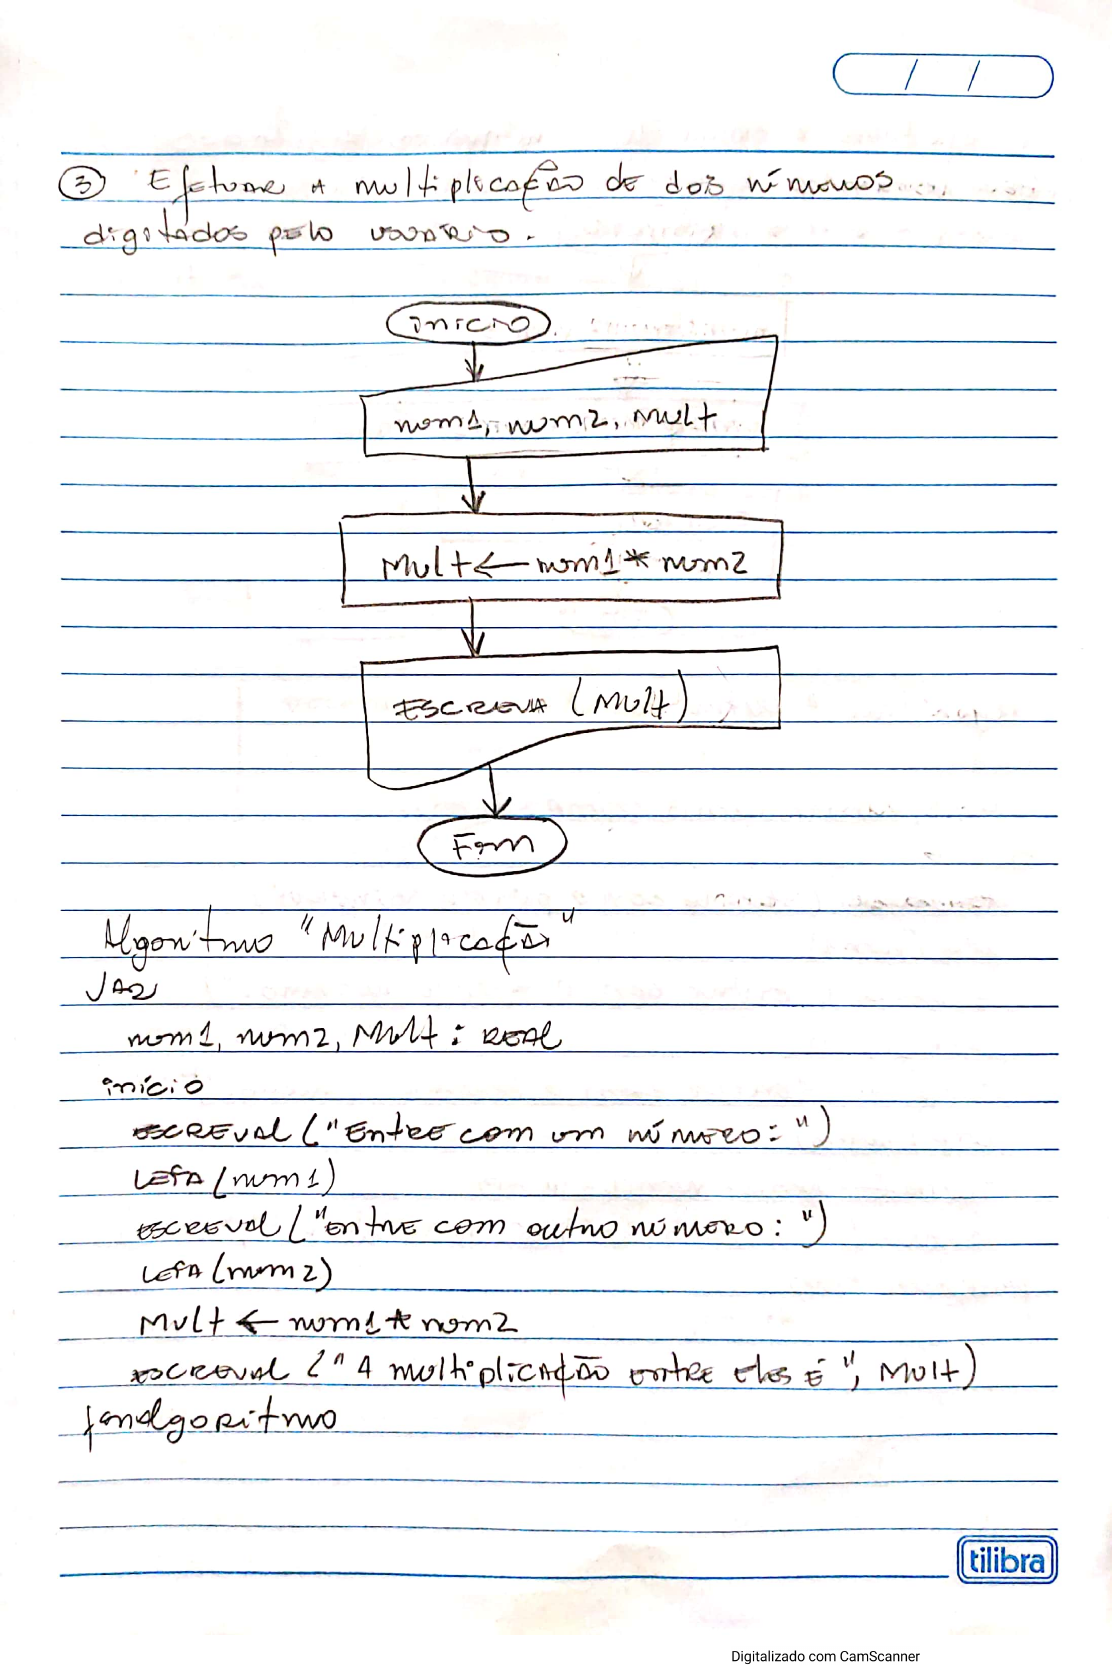 / /
3 Efetuar a multiplicação de dois números
digitados pelo usuário.
início
num1, num2, Mult
Mult ← num1 * num2
Escreva (Mult)
Fim
Algoritmo "Multiplicação"
Var
num1, num2, Mult : REAL
início
ESCREVAL ("Entre com um número: ")
LEIA (num1)
ESCREVAL ("Entre com outro número: ")
LEIA (num2)
Mult ← num1 * num2
ESCREVAL (" A multiplicação entre eles É ", Mult)
fimalgoritmo
tilibra
Digitalizado com CamScanner